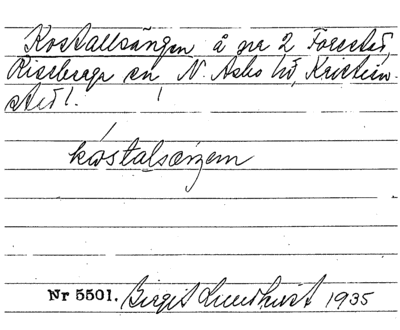 Kostallsängen å nr 2 Forestad,
Riseberga sn, N. Åsbo hd, Kristian-
stad l.
kostalsæŋen
Nr 5501. Birgit Lundkvist 1935